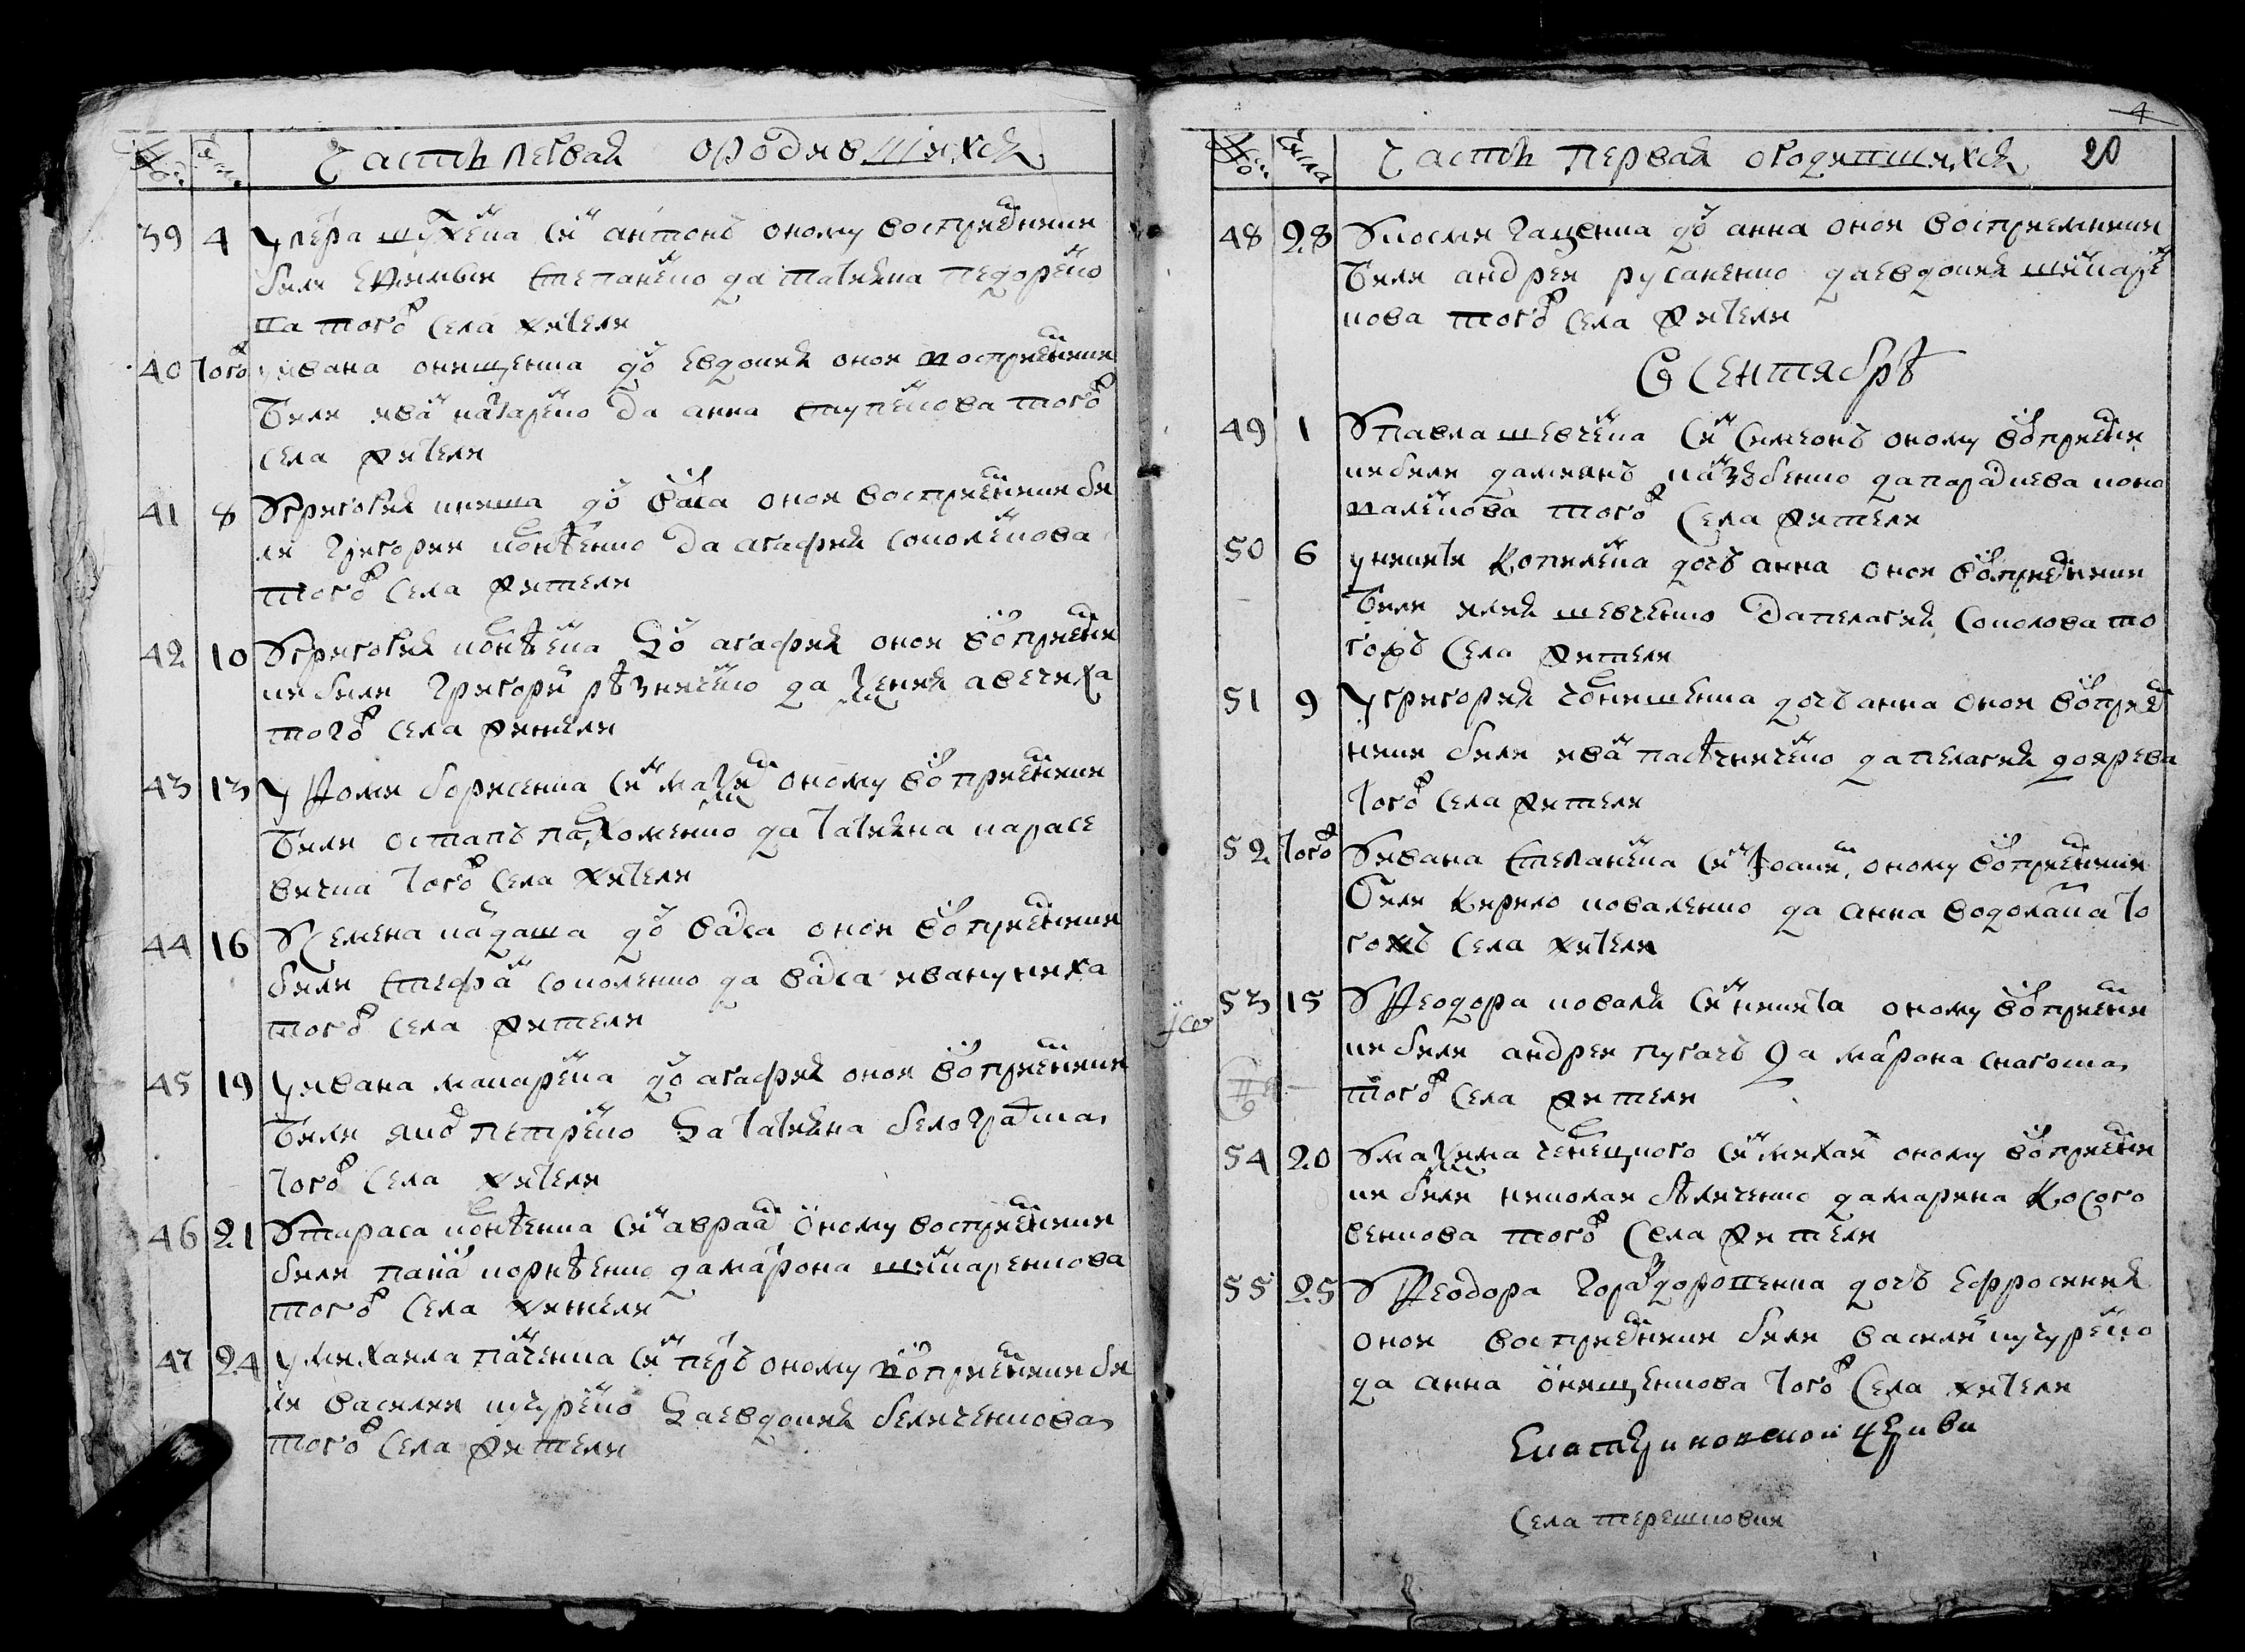 Часть первая о родившихся
39 4 У петра шуткенка сынъ антонъ оному восприемники
были Ефимъи степаненко да татияна педоренко
ва тогожъ села жители
40 тогожъ у ивана онищенка дочъ евдокия оной восприемники
были иванъ назаренко да анна ступенкова тогожъ
села жители
41 8 У григория кияшка дочъ васса оной восприемники бы
ли григории конвенко да агафия соколенкова
тогожъ села жители
42 10 У григория дочъ агафия оной восприемни
ки были григорий резниченко да ксения авечиха
тогожъ села жители
43 13 У фомы борисенка сынъ максимъ оному восприемники
были остапъ пархоменко да татияна карасе
вична тогожъ села жители
44 16 У семена кардаша дочъ васса оной восприемники
были стефанъ соколенко да васса иванучиха
тогожъ села жители
45 19 У ивана макаренка дочъ агафия оной восприемники
были яковъ петренко да татияна белоградска
тогожъ села жители
46 21 У тараса сынъ авраамъ оному восприемники
были панасъ корнѣенко да марфона шинкаренкова
тогожъ села жители
47 24 У михаила панченка сынъ петръ оному восприемники бы
ли василии кучуренко да евдокия беличенкова
тогожъ села жители
Часть первая о родившихся 20
48 28 У носия гаценка дочъ анна оной восприемники
были андрей русаненко да евдокия шинкаре
нкова тогожъ села жители
Сентябрь
49 1 У павла шевченка сынъ симеонъ оному восприемни
ки были дамиянъ да параскева коно
валенкова тогожъ села жители
50 6 У никиты копиленка дочъ анна оной восприемники
были илия шевченко да пелагия соколова то
гожъ села жители
51 9 У григория дочъ анна оной восприем
ники были иванъ пасѣчниченко да пелагия доярева
тогожъ села жители
52 тогожъ У ивана степаненка сынъ иоанникий оному восприемники
были кирило коваленко да анна водолазка то
гожъ села жители
53 15 У феодора коваля сынъ никита оному восприемни
ки были андрей пугачъ да марфона снагошка
тогожъ села жители
54 20 У максима сынъ михаилъ оному восприемни
ки были николай бѣличенко да марина косого
венкова тогожъ села жители
55 25 У феодора дорошенка дочъ ефросиния
оной восприемники были василий кучуренко
да анна онищенкова тогожъ села жители
Екатериновской церкви
села терешковки